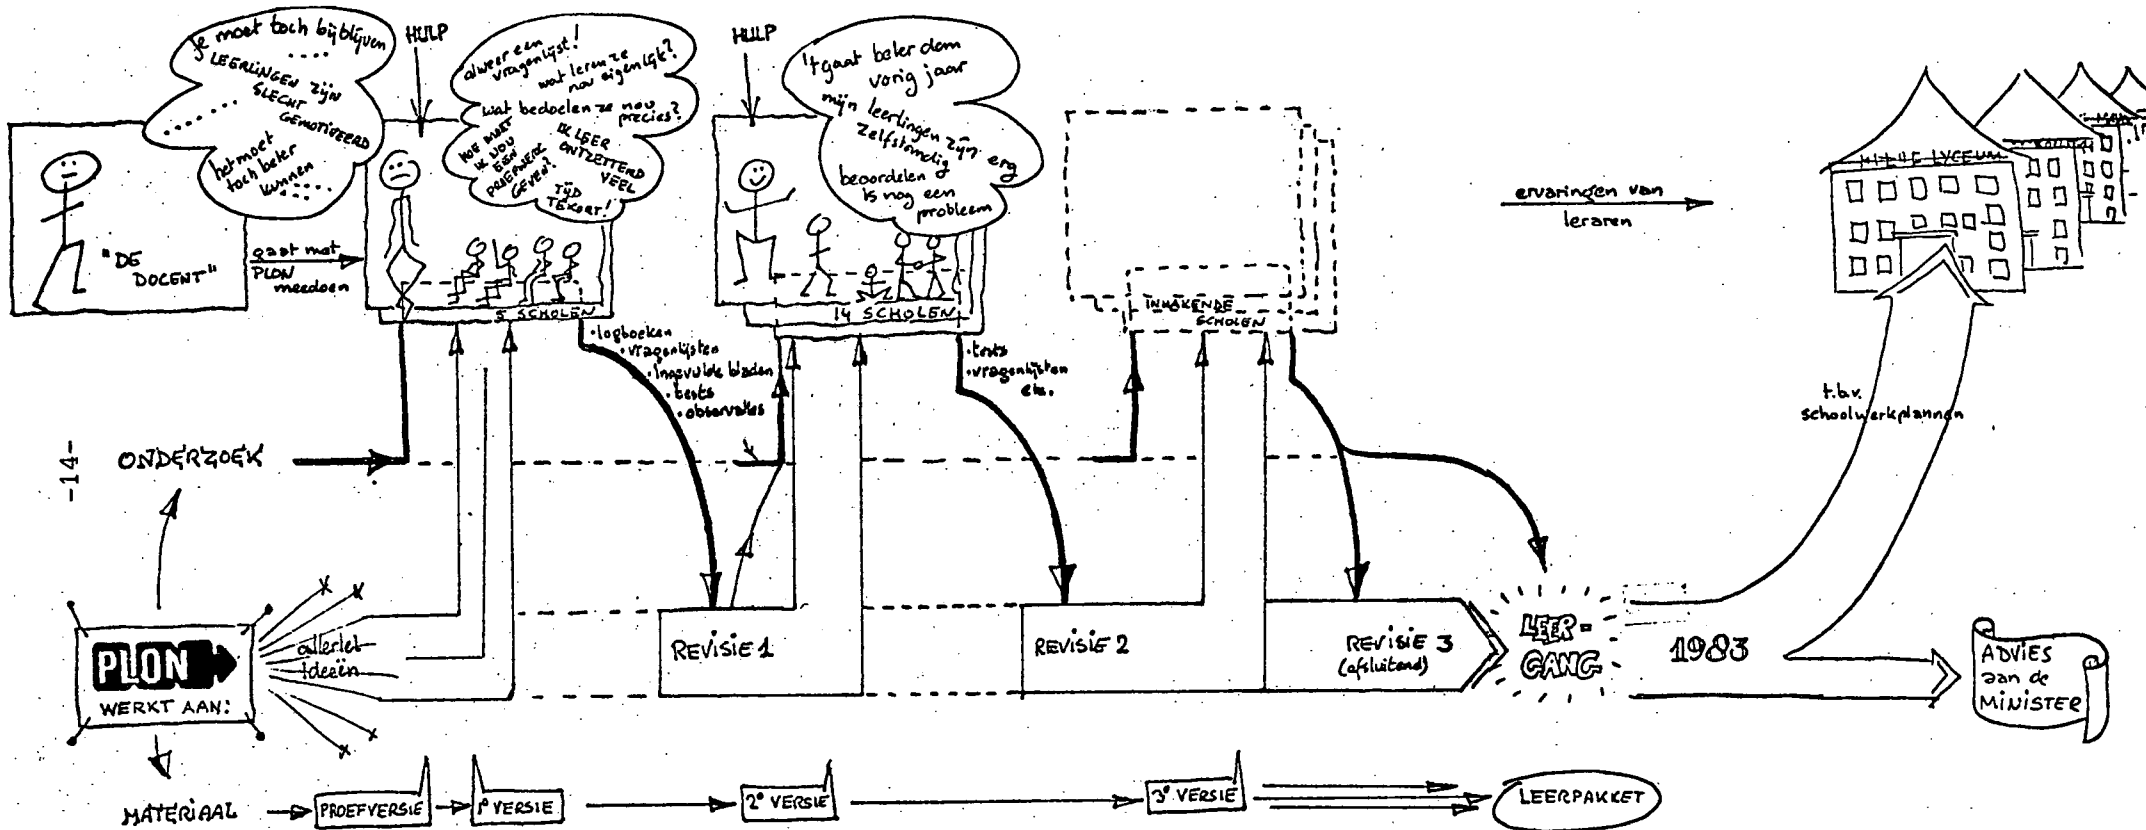 je moet toch bijblijven
.....
LEERLINGEN ZIJN
SLECHT
GEMOTIVEERD
......
het moet
toch beter
kunnen
.....
"DE
DOCENT"
gaat met
PLON
meedoen
HULP
alweer een
vragenlijst!
wat leren ze
nou eigenlijk?
wat bedoelen ze nou
precies?
HOE MOET
IK NOU
EEN
PROEFWERK
GEVEN?
IK LEER
ONTZETTEND
VEEL
TIJD
TEKORT!
5 SCHOLEN
HULP
't gaat beter dan
vorig jaar
mijn leerlingen zijn erg
zelfstandig
beoordelen
is nog een
probleem
14 SCHOLEN
INHAKENDE
SCHOLEN
ervaringen van
leraren
LYCEUM
·logboeken
·vragenlijsten
·ingevulde bladen
·tests
·observaties
·tests
·vragenlijsten
etc.
t.b.v.
schoolwerkplannen
-14-
ONDERZOEK
PLON
WERKT AAN:
allerlei
ideeën
REVISIE 1
REVISIE 2
REVISIE 3
(afsluitend)
LEER=
GANG
1983
ADVIES
aan de
MINISTER
MATERIAAL
PROEFVERSIE
1e VERSIE
2e VERSIE
3e VERSIE
LEERPAKKET